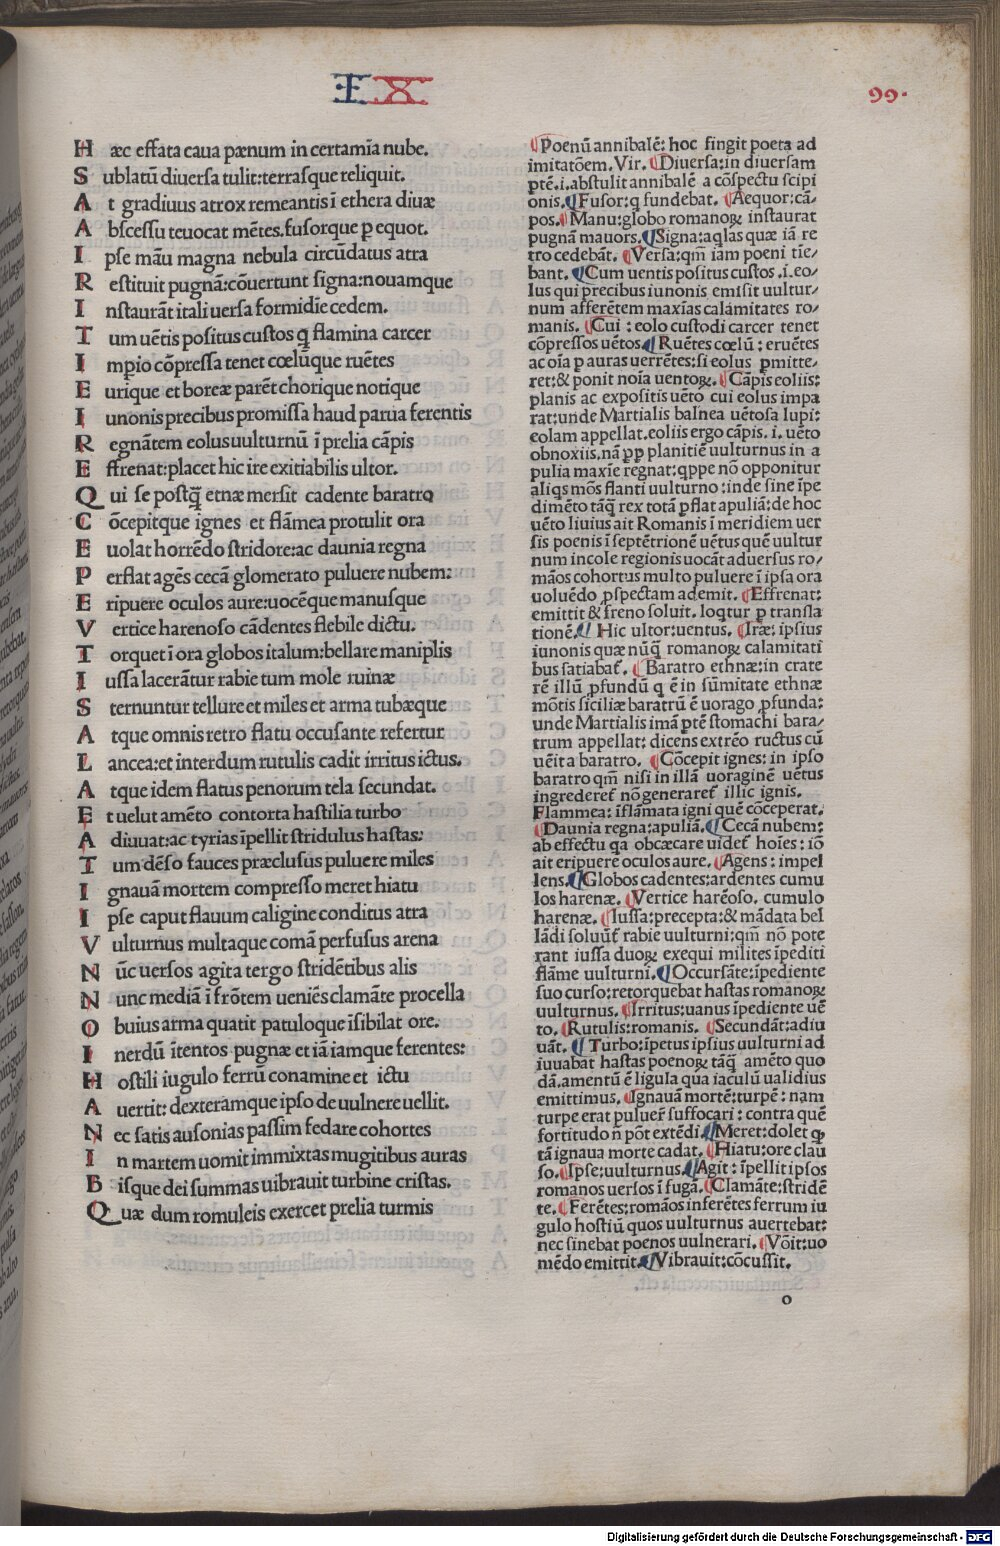 IX
99.
Hæc effata caua pænum in certamīa nube.
Sublatū diuersa tulit:terrasque reliquit.
At gradiuus atrox remeantis ī ethera diuæ
Abscessu teuocat mētes.fusorque p equot.
Ipse māu magna nebula circūdatus atra
Restituit pugnā:cōuertunt signa:nouamque
Instaurāt itali uersa formidīe cedem.
Tum uētis positus custos q̄ flamina carcer
Impio cōpressa tenet cœlūque ruētes
Eurique et boreæ parēt chorique notique
Iunonis precibus promissa haud parua ferentis
Regnātem eolus uulturnū ī prelia cāpis
Effrenat:placet hic ire exitiabilis ultor.
Qui se postq̄ etnæ mersit cadente baratro
Cōcepitque ignes et flāmea protulit ora
Euolat horrēdo stridore:ac daunia regna
Perflat agēs cecā glomerato puluere nubem:
Eripuere oculos aure:uocēque manusque
Vertice harenoso cādentes flebile dictu.
Torquet ī ora globos italum:bellare maniplis
Iussa lacerātur rabie tum mole ruinæ
Sternuntur tellure et miles et arma tubæque
Atque omnis retro flatu occusante refertur
Lancea:et interdum rutulis cadit irritus ictus.
Atque idem flatus penorum tela secundat.
Et uelut amēto contorta hastilia turbo
Adiuuat:ac tyrias īpellit stridulus hastas:
Tum dēso fauces præclusus puluere miles
Ignauā mortem compresso meret hiatu
Ipse caput flauum caligine conditus atra
Vulturnus multaque comā perfusus arena
Nūc uersos agita tergo stridētibus alis
Nunc mediā ī frōtem ueniēs clamāte procella
Obuius arma quatit patuloque īsibilat ore.
Inerdū ītentos pugnæ et iā iamque ferentes:
Hostili iugulo ferrū conamine et ictu
Auertit:dexteramque ipso de uulnere uellit.
Nec satis ausonias passim fedare cohortes
In martem uomit immixtas mugitibus auras
Bisque dei summas uibrauit turbine cristas.
Quæ dum romuleis exercet prelia turmis
Poenū annibalē: hoc fingit poeta ad
imitatōem. Vir. Diuersa:in diuersam
ptē.i.abstulit annibalē a cōspectu scipi
onis. Fusor:q fundebat. Aequor:cā-
pos. Manu:globo romanoꝝ instaurat
pugnā mauors. Signa:aqlas quæ iā re
tro cedebāt. Versa:qm̄ iam poeni tie-
bant. Cum uentis positus custos .i.eo-
lus qui precibus iunonis emisit uultur-
num afferētem maxīas calamitates ro-
manis. Cui : eolo custodi carcer tenet
cōpressos uētos. Ruētes cœlū : eruētes
ac oīa p auras uerrētes:si eolus pmitte-
ret:& ponit noīa uentoꝝ. Cāpis eoliis:
planis ac expositis uēto cui eolus impa
rat:unde Martialis balnea uētosa lupi:
eolam appellat.eoliis ergo cāpis. i. uēto
obnoxiis.nā pp planitiē uulturnus in a
pulia maxīe regnat:qppe nō opponitur
aliqs mōs flanti uulturno:inde sine īpe
dimēto tāq̄ rex totā pflat apuliā:de hoc
uēto liuius ait Romanis ī meridiem uer
sis poenis ī septētrionē uētus quē uultur
num incole regionis uocāt aduersus ro-
māos cohortus multo puluere ī ipsa ora
uoluēdo pspectam ademit. Effrenat:
emittit & freno soluit. loqtur p transla
tionē. Hic ultor:uentus. Iræ: ipsius
iunonis quæ nūq̄ romanoꝝ calamitati
bus satiabat̄. Baratro ethnæ:in crate
rē illū pfundū q ē in sūmitate ethnæ
mōtis siciliæ baratrū ē uorago pfunda:
unde Martialis imā ptē stomachi bara-
trum appellat: dicens extrēo ructus cū
uēit a baratro. Cōcepit ignes: in ipso
baratro qm̄ nisi in illā uoraginē uētus
ingrederet̄ nō generaret̄ illic ignis.
Flammea: īflāmata igni quē cōceperat.
Daunia regna:apuliā. Cecā nubem:
ab effectu qa obcæcare uidet̄ hoies: iō
ait eripuere oculos aure. Agens: impel
lens. Globos cadentes:ardentes cumu
los harenæ. Vertice harēoso. cumulo
harenæ. Iussa:precepta:& mādata bel
lādi soluūt̄ rabie uulturni:qm̄ nō pote
rant iussa duoꝝ exequi milites īpediti
flāme uulturni. Occursāte:īpediente
suo curso:retorquebat hastas romanoꝝ
uulturnus. Irritus:uanus īpediente uē
to. Rutulis:romanis. Secundāt:adiu
uāt. Turbo:īpetus ipsius uulturni ad
iuuabat hastas poenoꝝ tāq̄ amēto quo
dā.amentū ē ligula qua iaculū ualidius
emittimus. Ignauā mortē:turpē: nam
turpe erat puluer̄ suffocari : contra quē
fortitudo n pōt extēdi. Meret:dolet q
tā ignaua morte cadat. Hiatu:ore clau
so. Ipse:uulturnus. Agit : īpellit ipsos
romanos uersos ī fugā. Clamāte:stridē
te. Ferētes:romāos inferētes ferrum iu
gulo hostiū quos uulturnus auertebat:
nec sinebat poenos uulnerari. Vōit:uo
mēdo emittit. Vibrauit:cōcussit.
o
Digitalisierung gefördert durch die Deutsche Forschungsgemeinschaft - DFG